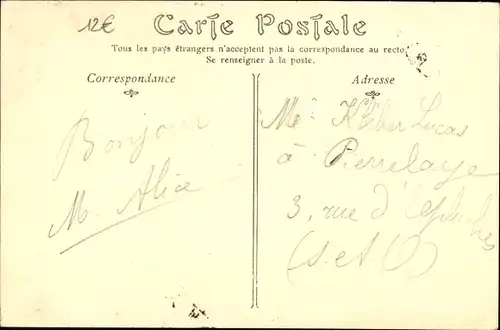 12€
Carte Postale
Tous les pays étrangers n'acceptent pas la correspondance au recto.
Se renseigner à la poste.
Correspondance
Adresse
Bonjour
M. Alice
Me Kleber Lucas
à Pierrelaye
3, rue d'
(S et O)